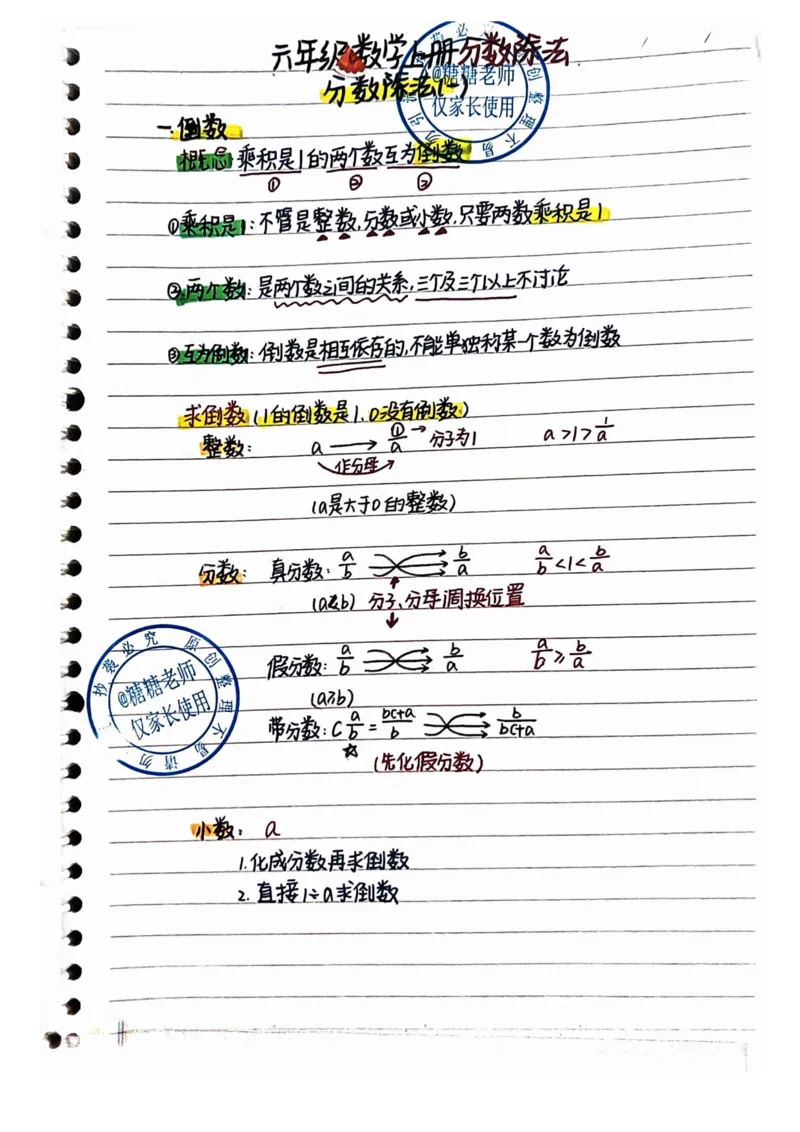 六年级数学上册分数除法
分数除法(一)
一.倒数
概念:乘积是1的两个数互为倒数
① ② ③
①乘积是1:不管是整数,分数或小数,只要两数乘积是1
②两个数:是两个数之间的关系,三个及三个以上不讨论
③互为倒数:倒数是相互依存的,不能单独称某一个数为倒数
求倒数(1的倒数是1、0没有倒数)
整数: a → ①/a → 分子为1 a>1>1/a
作分母
(a是大于0的整数)
分数: 真分数: a/b → b/a a/b<1<b/a
(a<b) 分子、分母调换位置
假分数: a/b → b/a a/b≥b/a
(a≥b)
带分数: C a/b = bc+a/b → b/bc+a
☆ (先化假分数)
小数: a
1.化成分数再求倒数
2.直接1÷a求倒数
@糖糖老师
仅家长使用
抄袭必究 原创整理不易 请勿
@糖糖老师
仅家长使用